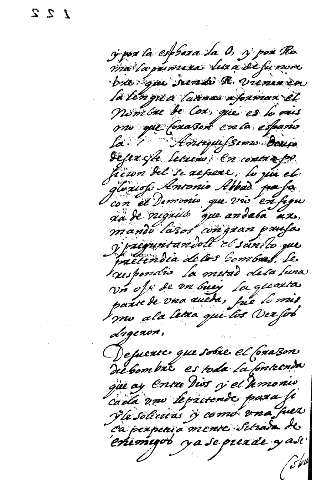 122
y por la esphera la O, y por Ro
ma la primera letra de su nom
bre que siendo R. vienen en
la lengua latina a formar el
Nombre de Cor, que es lo mis
mo que Corazon en la españo
la. Antiquissimo
de este letrero. En contrapo
sicion del se refiere, lo que el
glorioso Antonio Abbad passa
con el Demonio que vio en figu
ra de negrillo que andaba ar
mando lazos con gran priessa
y preguntandole el santo que
pretendia de los hombres. Le
respondio la mitad de la luna
un ojo de un buey la quarta
parte de una rueda, fue lo mis
mo a la letra que los Versos
digeron.
De suerte que sobre el Corazon
de hombre es toda la contienda
que ay entre Dios y el demonio
cada uno le pretende para si
y le solicita y como una fuer
ca perpetuamente sitiada de
enemigos ya se pierde y a se